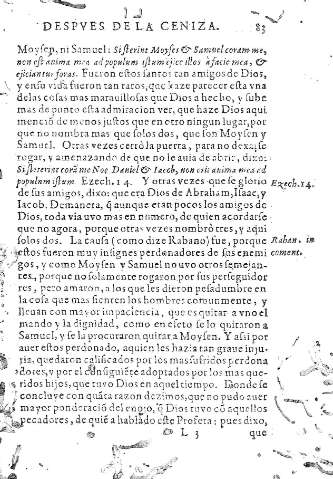 DESPVES DE LA CENIZA. 83
Moysen, ni Samuel: Si steterint Moyses & Samuel coram me,
non est anima mea ad populum istum eijce illos à facie mea, &
ejciantur foras. Fueron estos santos tan amigos de Dios,
y en su vida fueron tan raros, que haze parecer esta vna
de las cosas mas marauillosas que Dios a hecho, y sube
mas de punto esta admiracion ver, que haze Dios aqui
menciõ de menos justos que en otro ningun lugar, por
que no nombra mas que solos dos, que son Moysen y
Samuel. Otras vezes cerrò la puerta, para no dexarse
rogar, y amenazando de que no le auia de abrir, dixo:
Si steterint corã me Noe Daniel & Iacob, non erit anima mea ad
populum istum Ezech. 14. Y otras vezes que se gloriò
Ezech. 14.
de sus amigos, dixo: que era Dios de Abraham, Isaac, y
Iacob. Demanera, q̃ aunque eran pocos los amigos de
Dios, toda via uvo mas en numero, de quien acordarse
que no agora, porque otras vezes nombrò tres, y aqui
solos dos. La causa (como dize Rabano) fue, porque
Raban. in
estos fueron muy insignes perdonadores de sus enemi
coment.
gos, y como Moysen y Samuel no uvo otros semejan-
tes, porque no solamente rogaron por sus perseguidor
res, pero amaron, a los que les dieron pesadumbre en
la cosa que mas sienten los hombres comunmente, y
lleuan con mayor impaciencia, que es quitar a vno el
mando y la dignidad, como en efeto se lo quitaron a
Samuel, y se la procuraron quitar a Moysen. Y assi por
auer estos perdonado, a quien les hazia tan graue inju
ria, quedaron calificados por los mas sufridos perdona
dores, y por el cõsiguiẽte adoptados por los mas que-
ridos hijos, que tuvo Dios en aquel tiempo. Donde se
concluye con quãta razon dezimos, que no pudo auer
mayor ponderaciõ del enojo, q̃ Dios tuvo cõ aquellos
pecadores, de quiẽ a hablado este Profeta; pues dixo,
L 3 que